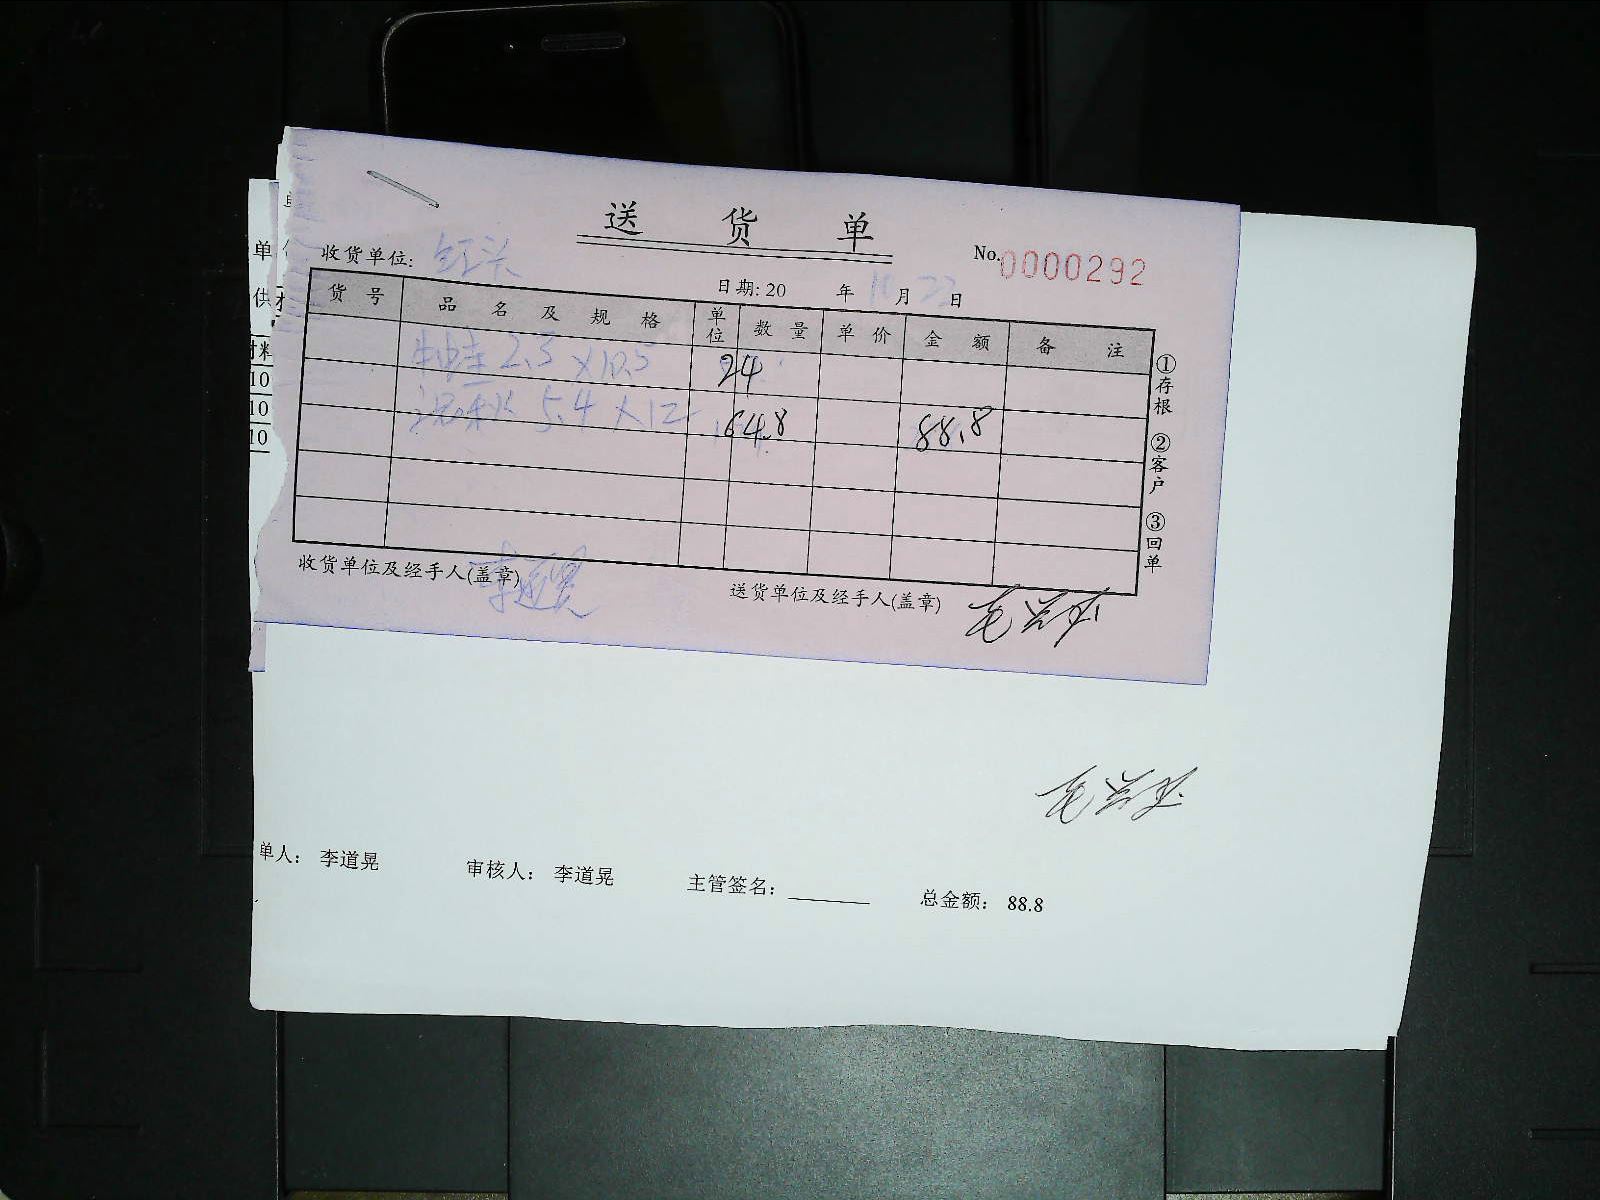 送 货 单
收货单位: 红头
No.0000292
日期: 20 年 11月 23日
货 号 品 名 及 规 格 单位 数 量 单 价 金 额 备 注
2.3 ×10.5 24
5.4 ×12 64.8 88.8
①存根 ②客户 ③回单
收货单位及经手人(盖章) 李道晃
送货单位及经手人(盖章)
单
供
材料
10
10
10
单人: 李道晃 审核人: 李道晃 主管签名: 总金额: 88.8